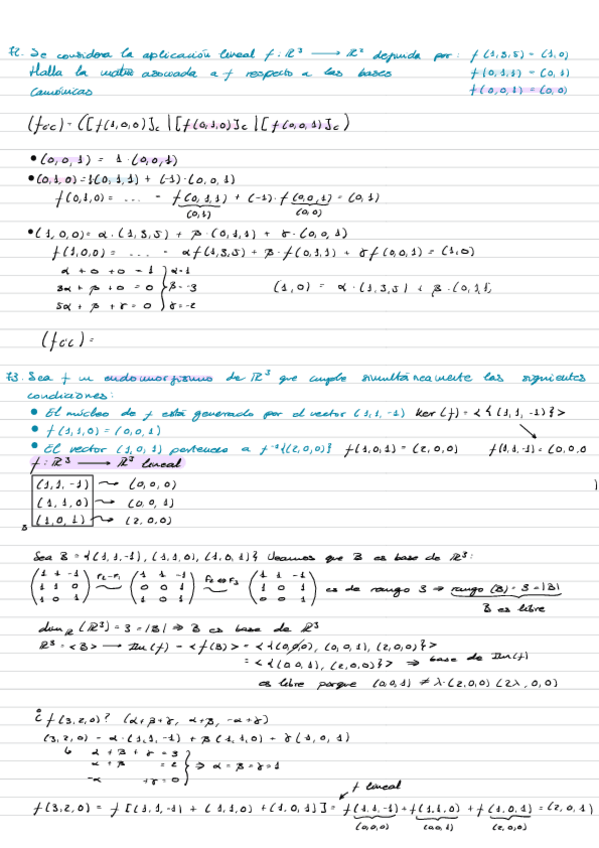 72. Se considera la aplicación lineal f: ℝ³ → ℝ² definida por: f(1,3,5) = (1,0)
Halla la matriz asociada a f respecto a las bases f(0,1,1) = (0,1)
canónicas f(0,0,1) = (0,0)
(fcc) = ([f(1,0,0)]c | [f(0,1,0)]c | [f(0,0,1)]c)
• (0,0,1) = 1·(0,0,1)
• (0,1,0) = 1(0,1,1) + (-1)·(0,0,1)
f(0,1,0) = ... = f(0,1,1) + (-1)·f(0,0,1) = (0,1)
(0,1) (0,0)
• (1,0,0) = α·(1,3,5) + β·(0,1,1) + γ·(0,0,1)
f(1,0,0) = ... = αf(1,3,5) + β·f(0,1,1) + γf(0,0,1) = (1,0)
α + 0 + 0 = 1 } α=1
3α + β + 0 = 0 } β=-3 (1,0) = α·(1,3,5) + β·(0,1,1)
5α + β + γ = 0 } γ=-2
(fcc) =
73. Sea f un endomorfismo de ℝ³ que cumple simultáneamente las siguientes
condiciones:
• El núcleo de f está generado por el vector (1,1,-1) ker(f) = <{(1,1,-1)}>
• f(1,1,0) = (0,0,1)
• El vector (1,0,1) pertenece a f⁻¹{(2,0,0)} f(1,0,1) = (2,0,0) f(1,1,-1) = (0,0,0
f: ℝ³ → ℝ³ lineal
(1,1,-1) → (0,0,0)
(1,1,0) → (0,0,1)
(1,0,1) → (2,0,0)
B
Sea B = {(1,1,-1), (1,1,0), (1,0,1)} Veamos que B es base de ℝ³:
(1 1 -1) r2-r1 (1 1 -1) F2↔F3 (1 1 -1)
(1 1 0) → (0 0 1) → (1 0 1) es de rango 3 ⇒ rango (B) = 3 = |B|
(1 0 1) (1 0 1) (0 0 1) B es libre
dim_R (ℝ³) = 3 = |B| ⇒ B es base de ℝ³
ℝ³ = <B> → Im(f) = <f(B)> = <{(0,0,0), (0,0,1), (2,0,0)}>
= <{(0,0,1), (2,0,0)}> ⇒ base de Im(f)
es libre porque (0,0,1) ≠ λ·(2,0,0) (2λ,0,0)
¿f(3,2,0)? (α+β+γ, α+β, -α+γ)
(3,2,0) = α·(1,1,-1) + β(1,1,0) + γ(1,0,1)
α + β + γ = 3
α + β = 2 } ⇒ α = β = γ = 1
-α +γ = 0
f lineal
f(3,2,0) = f[(1,1,-1) + (1,1,0) + (1,0,1)] = f(1,1,-1) + f(1,1,0) + f(1,0,1) = (2,0,1)
(0,0,0) (0,0,1) (2,0,0)